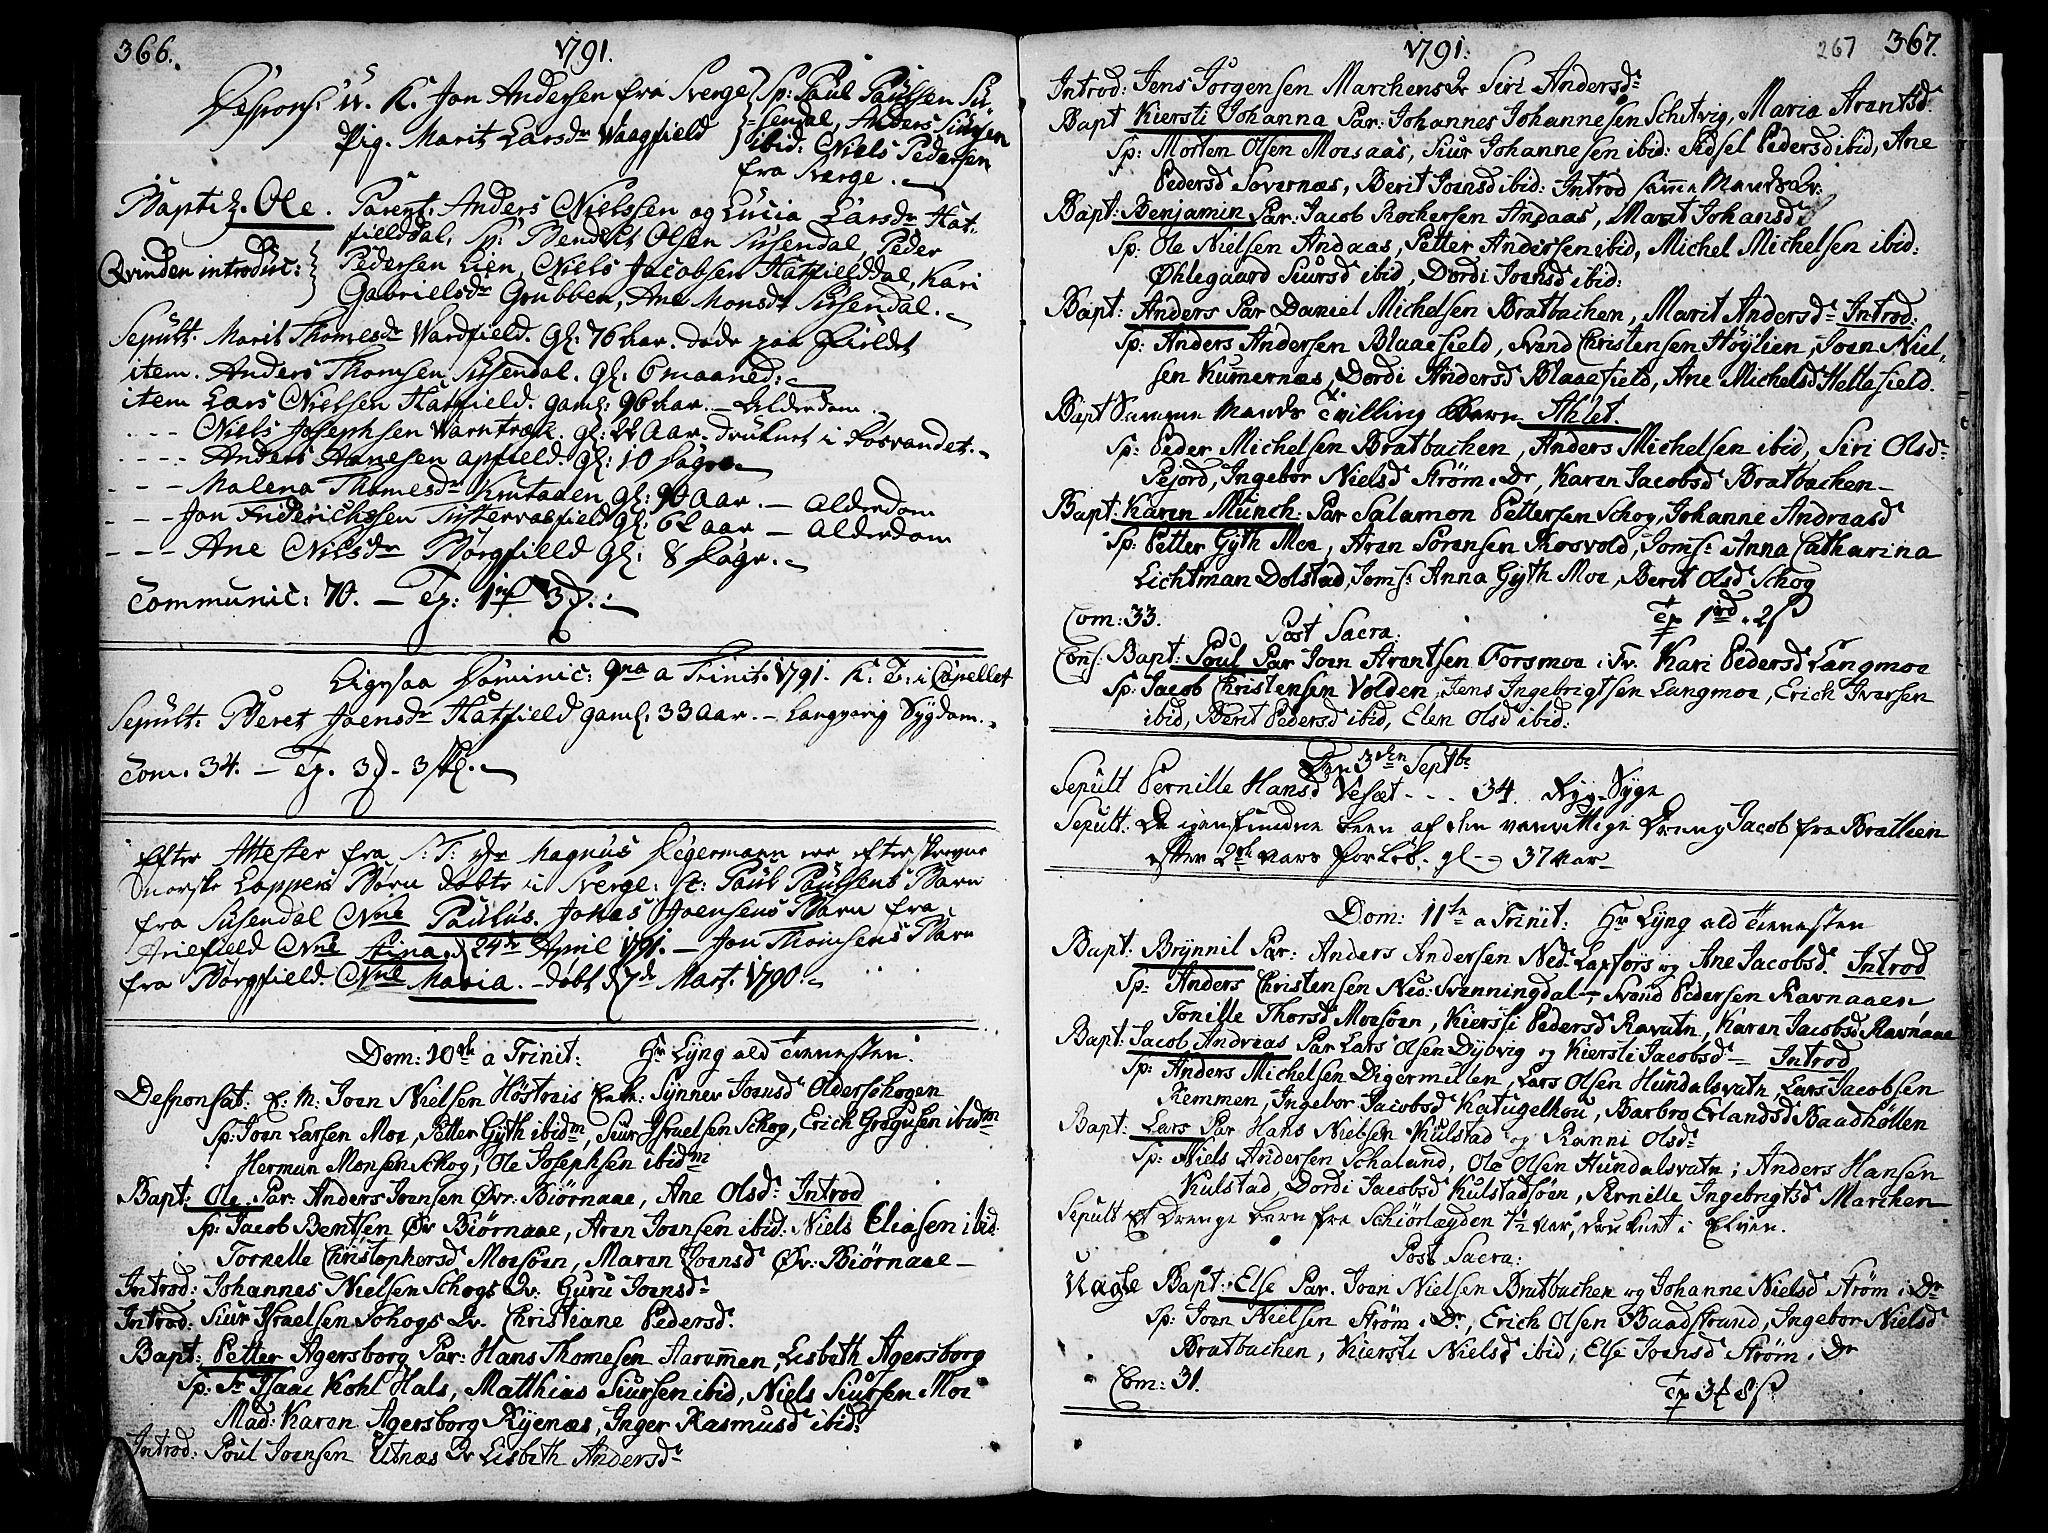 366.
1791.
Despons: U. K. Jon Andersen fra Sverge Sp: Paul Paulsen Su-
Pig. Marit Larsdr Waagfield
sendal, Anders Siursen
ibid: Niels Pedersen
fra Sverge.
Baptiz. Ole. Parent: Anders Nielssen og Lucia Larsdr Hat-
fielddal, Sp: Bendt Olsen Susendal, Peder
Qvinden introduc: Pedersen Lien, Niels Jacobsen Hatfielddal, Kari
Gabrielsdr Grubben, Ane Monsdr Susendal.
Sepult. Marit Thomesdr Vardfield. Gl: 76 Aar. døde paa Fieldet
item. Anders Thomsen Susendal. gl: 6 maaned:
item Lars Nielsen Hatfield. gaml: 96 Aar. - Alderdom.
- - - Niels Josephsen Varntræsk. gl: 22 Aar. druknet i Røsvandet.
- - - Anders Arnesen apfield. gl: 10 Dage
- - - Malena Thomesdr Knutaaen gl: 90 Aar. - Alderdom
- - - Jon Friderichssen Tustervasfield gl: 62 aar - Alderdom
- - - Ane Nilsdr Børgfield Gl: 8 Dage.
Communic: 70. - Tp: 1 3
Ligesaa Dominic: 9na a Trinit. 1791. K. T. i Capellet
Sepult: Beret Joensdr Hatfield gaml: 33 Aar. - Langvarig Sygdom.
Com. 34. - Tp. 3 - 3 sk.
Efter Attester fra S: T: Hr Magnus Fegermann ere efterskrevne
Norske Lappers Børn døbte i Sverge: sc: Paul Paulsens Barn
fra Susendal Nne Paulus. Jonas Joensens Barn fra
Ariefield Nne Stina. d 24de April 1791. - Jon Thomsens Barn
fra Børgfield. Nne Maria. - døbt d 7de Mart. 1790.
Dom: 10de a Trinit: Hr Lyng ald Tienesten.
Desponsat: E: M: Joen Nielsen Høstrais Enk: Synnev Joensd Olderschogen
Sp: Joen Larsen Moe, Petter Gyth ibidm, Siur Israelsen Schog, Erich Gregusen ibidm
Herman Monsen Schog, Ole Josephsen ibidm
Bapt: Ole Par: Anders Joensen Øvr: Biørnaae, Ane Olsd: Introd
Sp: Jacob Bentsen Øv Biørnaae, Aren Joensen ibid: Niels Eliasen ibid
Tornelle Christophersd Moesøen, Maren Joensd Øv: Biørnaae -
Introd: Johannes Nielsen Schogs Qv: Guru Joensd
Introd: Siur Israelsen Schogs Qv. Christiane Pedersd.
Bapt: Petter Agersborg Par: Hans Thomesen Aaremmen, Lisbeth Agersborg
Sp: Sr Isaac Kohl Hals, Matthias Siursen ibid, Niels Siursen Moe
Mad: Karen Agersborg Ryenæs, Inger Rasmusd ibid:
Introd: Poul Joensen Utnæs Qv Lisbeth Andersd
1791.
267 367.
Introd: Jens Jørgensen Marchens Qv Siri Andersd
Bapt Kiersti Johanna Par: Johannes Johannesen Schitvig, Maria Arantsd:
Sp: Morten Olsen Moesaas, Siur Johannesen ibid: Sidsel Pedersd ibid, Ane
Pedersd Sovernæs, Berit Joensd ibid: Introd samme Mands Qv:
Bapt: Benjamin Par: Jacob Rochersen Andaas, Marit Johansd
Sp: Ole Nielsen Andaas, Petter Andersen ibid, Michel Michelsen ibid:
Øhlegaard Siursd ibid, Dordi Joensd ibid:
Bapt: Anders Par Daniel Michelsen Bratbachen, Marit Andersd Introd:
Sp: Anders Andersen Blaaefield, Svend Christensen Høylien, Joen Niel-
sen Kummernæs, Dordi Andersd Blaaefield, Ane Michelsd Hellefield.
Bapt Samme Mands Tvilling Barn Ahlet.
Sp: Peder Michelsen Bratbachen, Anders Michelsen ibid, Siri Olsd
Pejord, Ingebor Nielsd Strøm i Dr, Karen Jacobsd Bratbachen -
Bapt: Karen Münch: Par Salamon Pettersen Schog, Johanne Andreasd
Sp: Petter Gyth Moe, Aren Sørensen Rosvold, Jomf: Anna Catharina
Lichtman Dolstad, Jomf: Anna Gyth Moe, Berit Olsd Schog
Com: 33. Tp 1 rd. 2 s
Post Sacra:
Conf: Bapt: Poul Par Joen Arentsen Forsmoe i Fv. Kari Pedersd Langmoe
Sp: Jacob Christensen Volden, Jens Ingebrigtsen Langmoe, Erich Ivarsen
ibid, Berit Pedersd ibid, Elen Olsd ibid:
Den 3den Septbr
Sepult Pernille Hansd Vesæt - - - 34. Ryg-Syge
Sepult: De igienfundne Been af den vanvittige Dreng Jacob fra Bratlien
efter 2de Aars Forløb. gl - 37 Aar
Dom: 11te a Trinit: Hr Lyng ald Tienesten
Bapt: Brynnil Par: Anders Andersen Ned. Lapførs og Ane Jacobsd. Introd
Sp: Anders Christensen Ned: Svenningdal -, Svend Pedersen Ravnaaen
Tonille Thorsd Moesøen, Kiersti Pedersd Ravatn, Karen Jacobsd Ravnaae
Bapt: Jacob Andreas Par Lars Olsen Dybvig og Kiersti Jacobsd - Introd
Sp: Anders Michelsen Digermulen, Lars Olsen Hundalsvatn, Lars Jacobsen
Remmen, Ingebor Jacobsd Katugelhou, Barbro Erlandsd Baadhøllen
Bapt: Lars Par Hans Nielsen Kulstad og Ranni Olsd
Sp: Niels Andersen Schalund, Ole Olsen Hundalsvatn, Anders Hansen
Kulstad, Dordi Jacobsd Kulstadsøen, Pernille Ingebrigtsd Marchen
Sepult Et Drenge barn fra Schiørlægden 7 1/2 Aar, druknet i Elven.
Post Sacra:
Uægte Bapt: Else Par. Joen Nielsen Bratbachen og Johanne Nielsd Strøm i Dr
Sp: Joen Nielsen Strøm i Dr, Erich Olsen Baadstrand, Ingebor Nielsd
Bratbachen, Kiersti Nielsd ibid, Else Joensd Strøm i Dr
Com: 31. Tp 3 8 s.